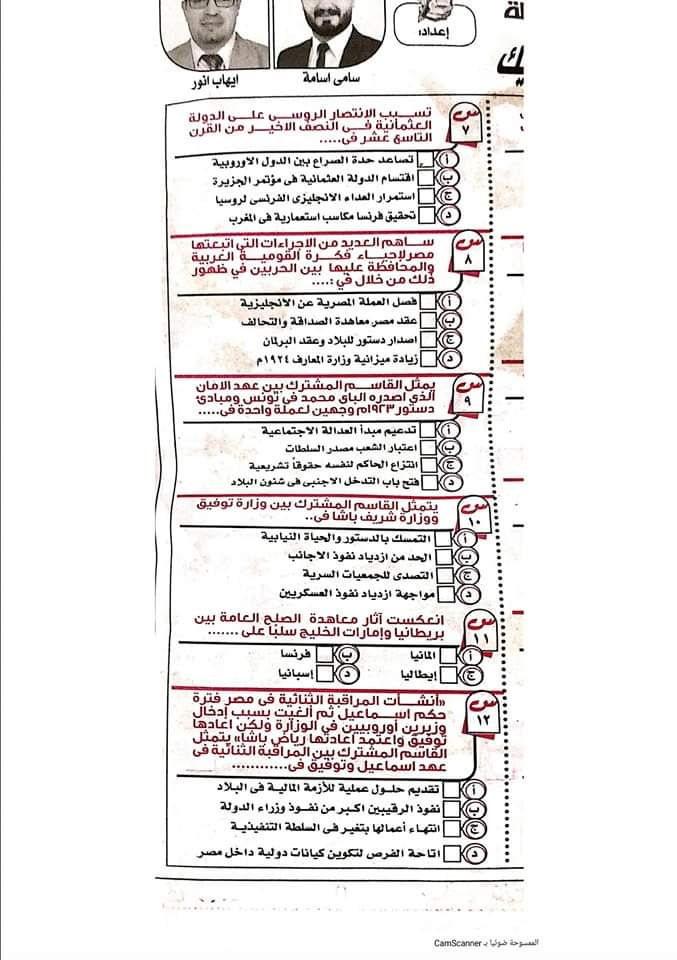 لة
يك
إعداد:
سامى اسامة
ايهاب انور
س ٧
تسبب الانتصار الروسى على الدولة
العثمانية فى النصف الاخير من القرن
التاسع عشر فى.....
أ تصاعد حدة الصراع بين الدول الاوروبية
ب اقتسام الدولة العثمانية فى مؤتمر الجزيرة
ج استمرار العداء الانجليزى الفرنسى لروسيا
د تحقيق فرنسا مكاسب استعمارية فى المغرب
س ٨
ساهم العديد من الإجراءات التي اتبعتها
مصر لإحياء فكرة القومية العربية
والمحافظة عليها بين الحربين في ظهور
ذلك من خلال في :....
أ فصل العملة المصرية عن الانجليزية
ب عقد مصر معاهدة الصداقة والتحالف
ج اصدار دستور للبلاد وعقد البرلمان
د زيادة ميزانية وزارة المعارف ١٩٢٤م
س ٩
يمثل القاسم المشترك بين عهد الامان
الذي اصدره الباى محمد فى تونس ومبادئ
دستور ١٩٢٣م وجهين لعملة واحدة فى.....
أ تدعيم مبدأ العدالة الاجتماعية
ب اعتبار الشعب مصدر السلطات
ج انتزاع الحاكم لنفسه حقوقاً تشريعية
د فتح باب التدخل الاجنبى فى شئون البلاد
س ١٠
يتمثل القاسم المشترك بين وزارة توفيق
ووزارة شريف باشا فى..
أ التمسك بالدستور والحياة النيابية
ب الحد من ازدياد نفوذ الاجانب
ج التصدى للجمعيات السرية
د مواجهة ازدياد نفوذ العسكريين
س ١١
انعكست آثار معاهدة الصلح العامة بين
بريطانيا وإمارات الخليج سلبًا على .......
أ المانيا ب فرنسا
ج إيطاليا د إسبانيا
س ١٢
«أنشأت المراقبة الثنائية فى مصر فترة
حكم اسماعيل ثم ألغيت بسبب إدخال
وزيرين أوروبيين في الوزارة ولكن أعادها
توفيق واعتمد اعادتها رياض باشا» يتمثل
القاسم المشترك بين المراقبة الثنائية فى
عهد اسماعيل وتوفيق فى............
أ تقديم حلول عملية للأزمة المالية فى البلاد
ب نفوذ الرقيبين اكبر من نفوذ وزراء الدولة
ج انتهاء أعمالها بتغير فى السلطة التنفيذية
د اتاحة الفرص لتكوين كيانات دولية داخل مصر
الممسوحة ضوئيا بـ CamScanner